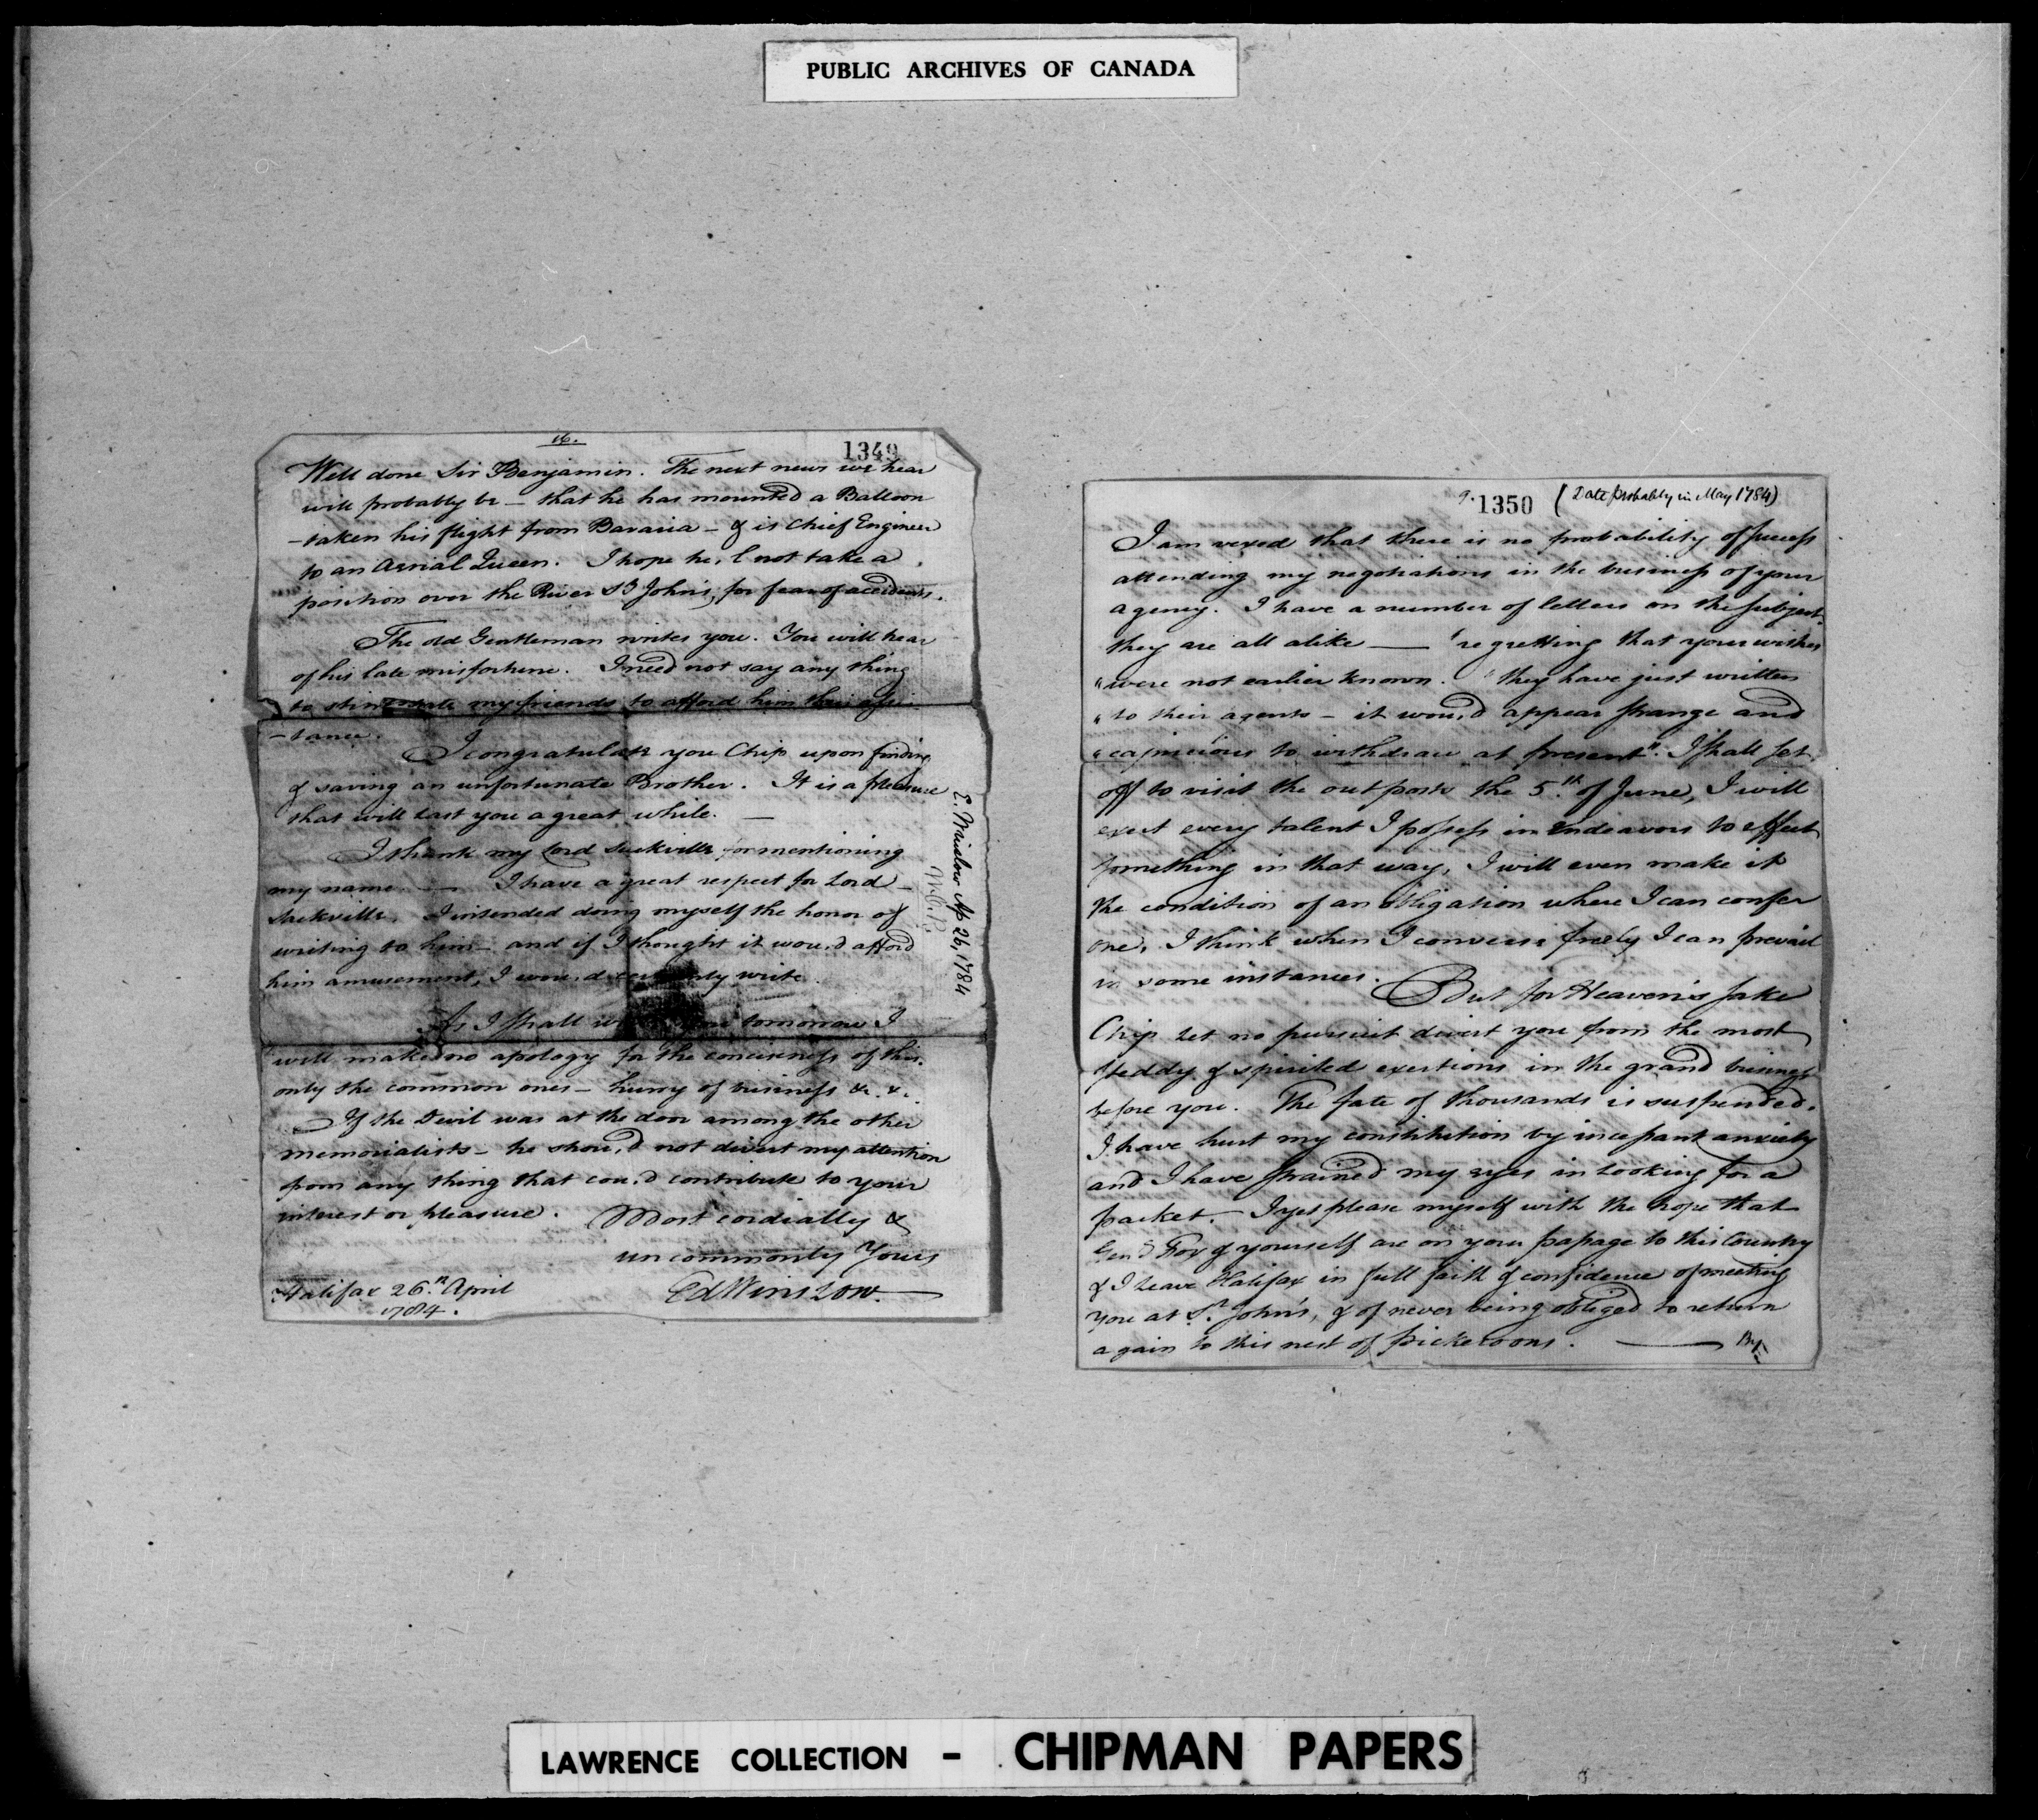 PUBLIC ARCHIVES OF CANADA
16.
1349
Well done Sir Benjamin. The next news we hear
will probably be - that he has mounted a Balloon
- taken his flight from Bavaria - & is Chief Engineer
to an Aerial Queen. I hope he,l not take a
position over the River St Johns, for fear of accidents.
The old Gentleman writes you. You will hear
of his late misfortune. I need not say any thing
to stimulate my friends to afford him their assis
-tance.
I congratulate you Chip upon finding
& saving an unfortunate Brother. It is a pleasure
that will last you a great while. —
I thank my Lord Sackville for mentioning
my name. — I have a great respect for Lord
Sackville. I intended doing myself the honor of
writing to him - and if I thought it wou,d afford
him amusement, I wou,d certainly write.
As I shall write you tomorrow I
will make no apology for the conciseness of this.
only the common ones - hurry of business &c. &c.
If the Devil was at the door among the other
memorialists - he shou,d not divert my attention
from any thing that cou,d contribute to your
interest or pleasure. Most cordially &
uncommonly Yours
Ed Winslow.
Halifax 26.th April
1784.
E. Winslow Ap 26, 1784
9.
1350 (Date probably in May 1784)
I am vexed that there is no probability of success
attending my negotiations in the business of your
agency. I have a number of letters on the subject.
they are all alike — "regretting that your wishes
"were not earlier known. "they have just written
"to their agents - it wou,d appear strange and
"capricious to withdraw at present". I shall set
off to visit the outposts the 5.th of June, I will
exert every talent I possess in endeavors to effect
something in that way, I will even make it
the condition of an obligation where I can confer
one, I think when I converse freely I can prevail
in some instances. But for Heaven's sake
Chip let no pursuit divert you from the most
steddy & spirited exertions in the grand business
before you. The fate of thousands is suspended.
I have hurt my constitution by incessant anxiety
and I have strained my eyes in looking for a
packet. I yet please myself with the hope that
Gen.l Fox & yourself are on your passage to this Country
& I leave Halifax in full faith & confidence of meeting
you at St. John's, & of never being obliged to return
again to this nest of picketoons. — By
LAWRENCE COLLECTION - CHIPMAN PAPERS